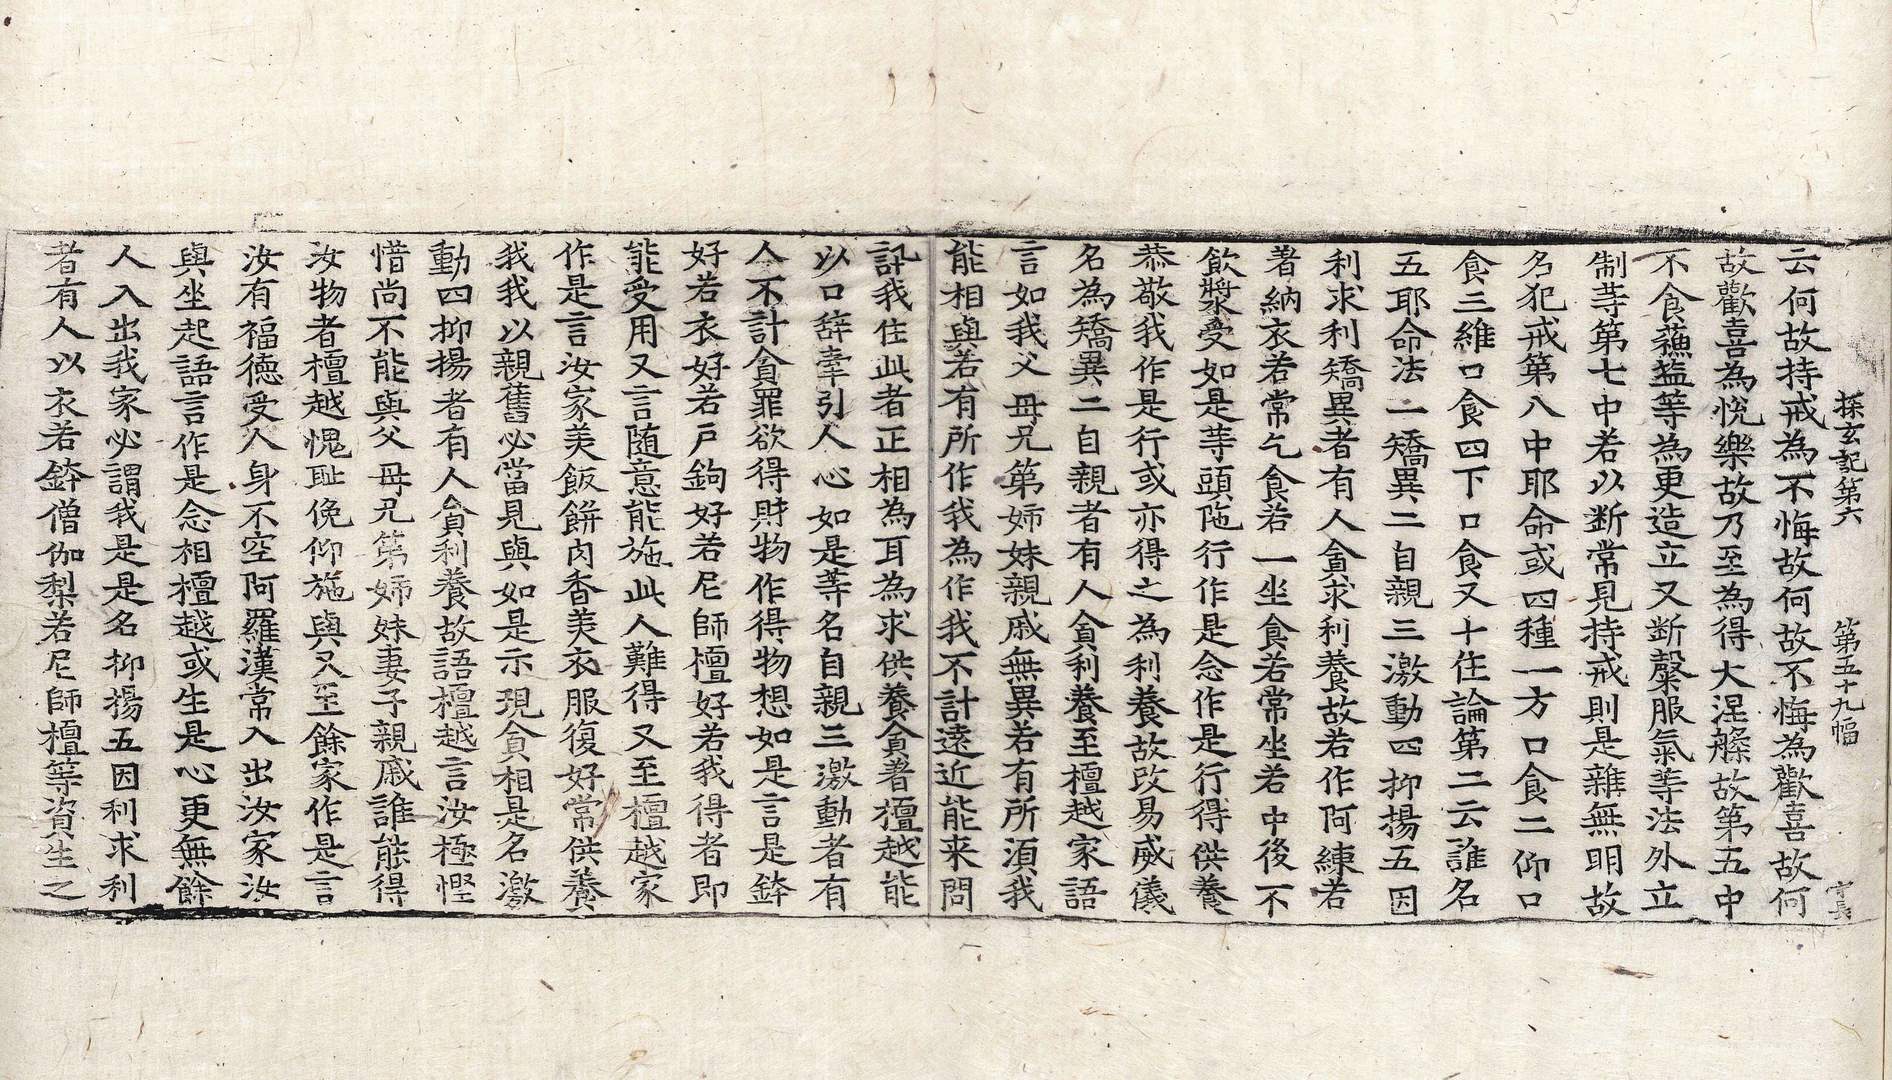 探玄記第六 第五十九幅 寸長
云何故持戒為不悔故何故不悔為歡喜故何
故歡喜為悅樂故乃至為得大涅槃故第五中
不食蘓塩等為更造立又断槩服氣等法外立
制等第七中若以断常見持戒則是雜無明故
名犯戒第八中耶命或四種一方口食二仰口
食三維口食四下口食又十住論第二云誰名
五耶命法一矯異二自親三激動四抑揚五因
利求利矯異者有人貪求利養故若作阿練若
著納衣若常乞食若一坐食若常坐若中後不
飲漿受如是等頭陁行作是念作是行得供養
恭敬我作是行或亦得之為利養故改易威儀
名為矯異二自親者有人貪利養至檀越家語
言如我父母兄第姉妹親戚無異若有所湏我
能相與若有所作我為作我不計遠近能来問
訊我住此者正相為耳為求供養貪著檀越能
以口辞牽引人心如是等名自親三激動者有
人不計貪罪欲得財物作得物想如是言是鉢
好若衣好若戶鉤好若尼師檀好若我得者即
能受用又言随意能施此人難得又至檀越家
作是言汝家羙飯餅肉香羙衣服復好常供養
我我以親舊必當見與如是示現貪相是名激
動四抑揚者有人貪利養故語檀越言汝極慳
惜尚不能與父母兄第姉妹妻子親戚誰能得
汝物者檀越愧耻俛仰施與又至餘家作是言
汝有福德受人身不空阿羅漢常入出汝家汝
與坐起語言作是念相檀越或生是心更無餘
人入出我家必謂我是是名抑揚五因利求利
者有人以衣若鉢僧伽梨若尼師檀等資生之